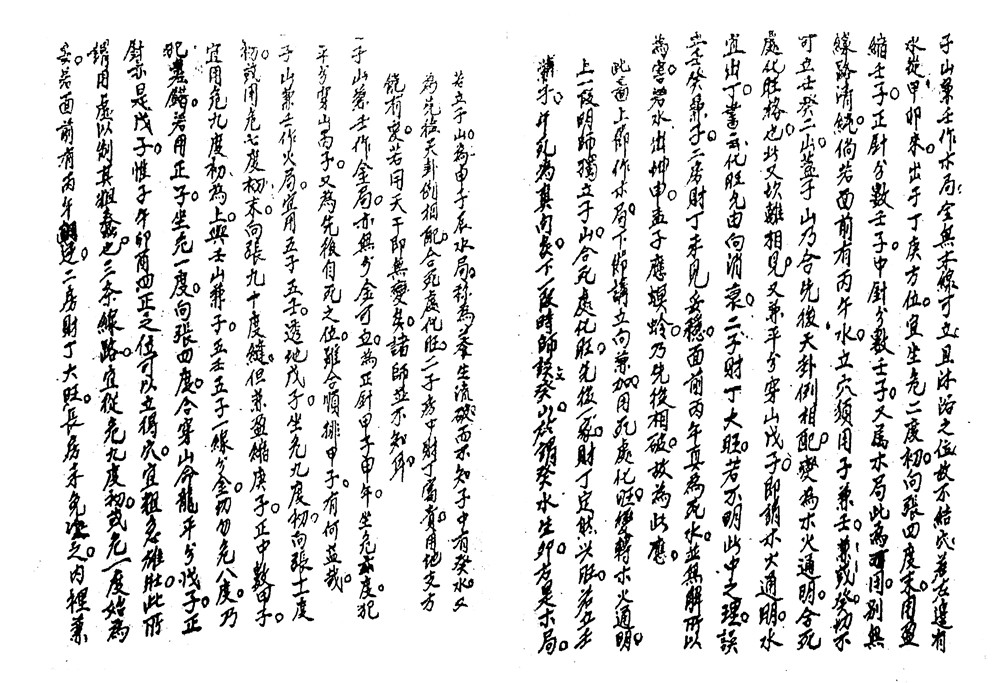 子山兼壬作木局。全無木線可立。且沐浴之位。故不結氏。若左邊有
水從甲卯來出于丁庚方位。宜坐危二度初向張四度末。用盈
縮壬子。正針分數壬子。中針分數士子。又屬木局。此為可用。別無
線路清純。倘若面前有丙午水。立穴須用子兼壬。兼或癸。切不
可立壬癸二山。蓋子山乃合先後天卦例相配。變為木火通明。合死
處化旺格也。此又坎離相見。又兼平分穿山戊子。即謂木火通明。水
宜出丁。書云。化旺允由向消衰。二子財丁大旺。若不明此中之理。誤
立壬癸兼子。二房財丁未見安穩。面前丙午真為死水。並無解所以
為害。若水出坤申。孟子應螟蛉。乃先後相破故為此應。
此一節上節作木局。下節講立向兼加用死處化旺。變轉木火通明。
上一段明師獨立子山合死處化旺。先後一家財丁定然興旺。若立壬
癸。午死為真向衰。下一段時師誤癸山。於謂癸水生卯。若是木局。
若立子山。為申子辰水局。称為養生流破。而不知子中有癸水。又
為先後天卦例相配。合死處化旺。二子房中財丁富貴。用地支方
能有変。若用天干即無變矣。諸師並不知耳。
子山兼壬作金局。亦無分金可立。為正針甲子申午。坐危 度犯
平分穿山丙子。又為先後自死之位。雖合順排甲子。有何益哉。
子山兼壬作火局。宜用五子五壬。透地戊子。坐危九度初向張十二度
初。或用危七度初末向張九十度縫。但兼盈縮庚子。正中數甲子。
宜用危九度初為上。與壬山兼子。五壬五子一線分金。切勿危八度。乃
犯差錯。若用正子。坐危一度向張四度。合穿山命龍平分戊子。正
對示是戊子。惟子午卯酉四正之位可以立得穴。宜粗急雄壯。此所
謂用虛以制其粗蠢之二条線路。宜從危九度初或危一度始為
妥。若面前有丙午 二房財丁大旺。長房未免 之。內裡兼